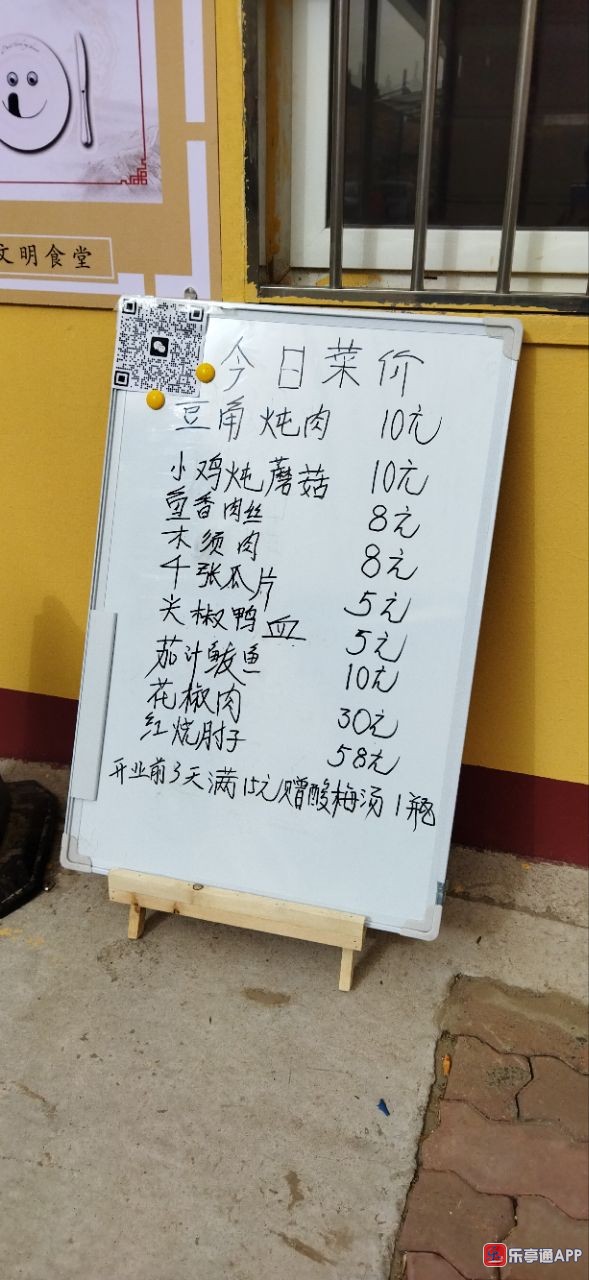 文明食堂
今日菜价
豆角炖肉 10元
小鸡炖蘑菇 10元
鱼香肉丝 8元
木须肉 8元
千张瓜片 5元
尖椒鸭血 5元
茄汁鲅鱼 10元
花椒肉 30元
红烧肘子 58元
开业前3天满15元赠酸梅汤1瓶
乐亭通APP